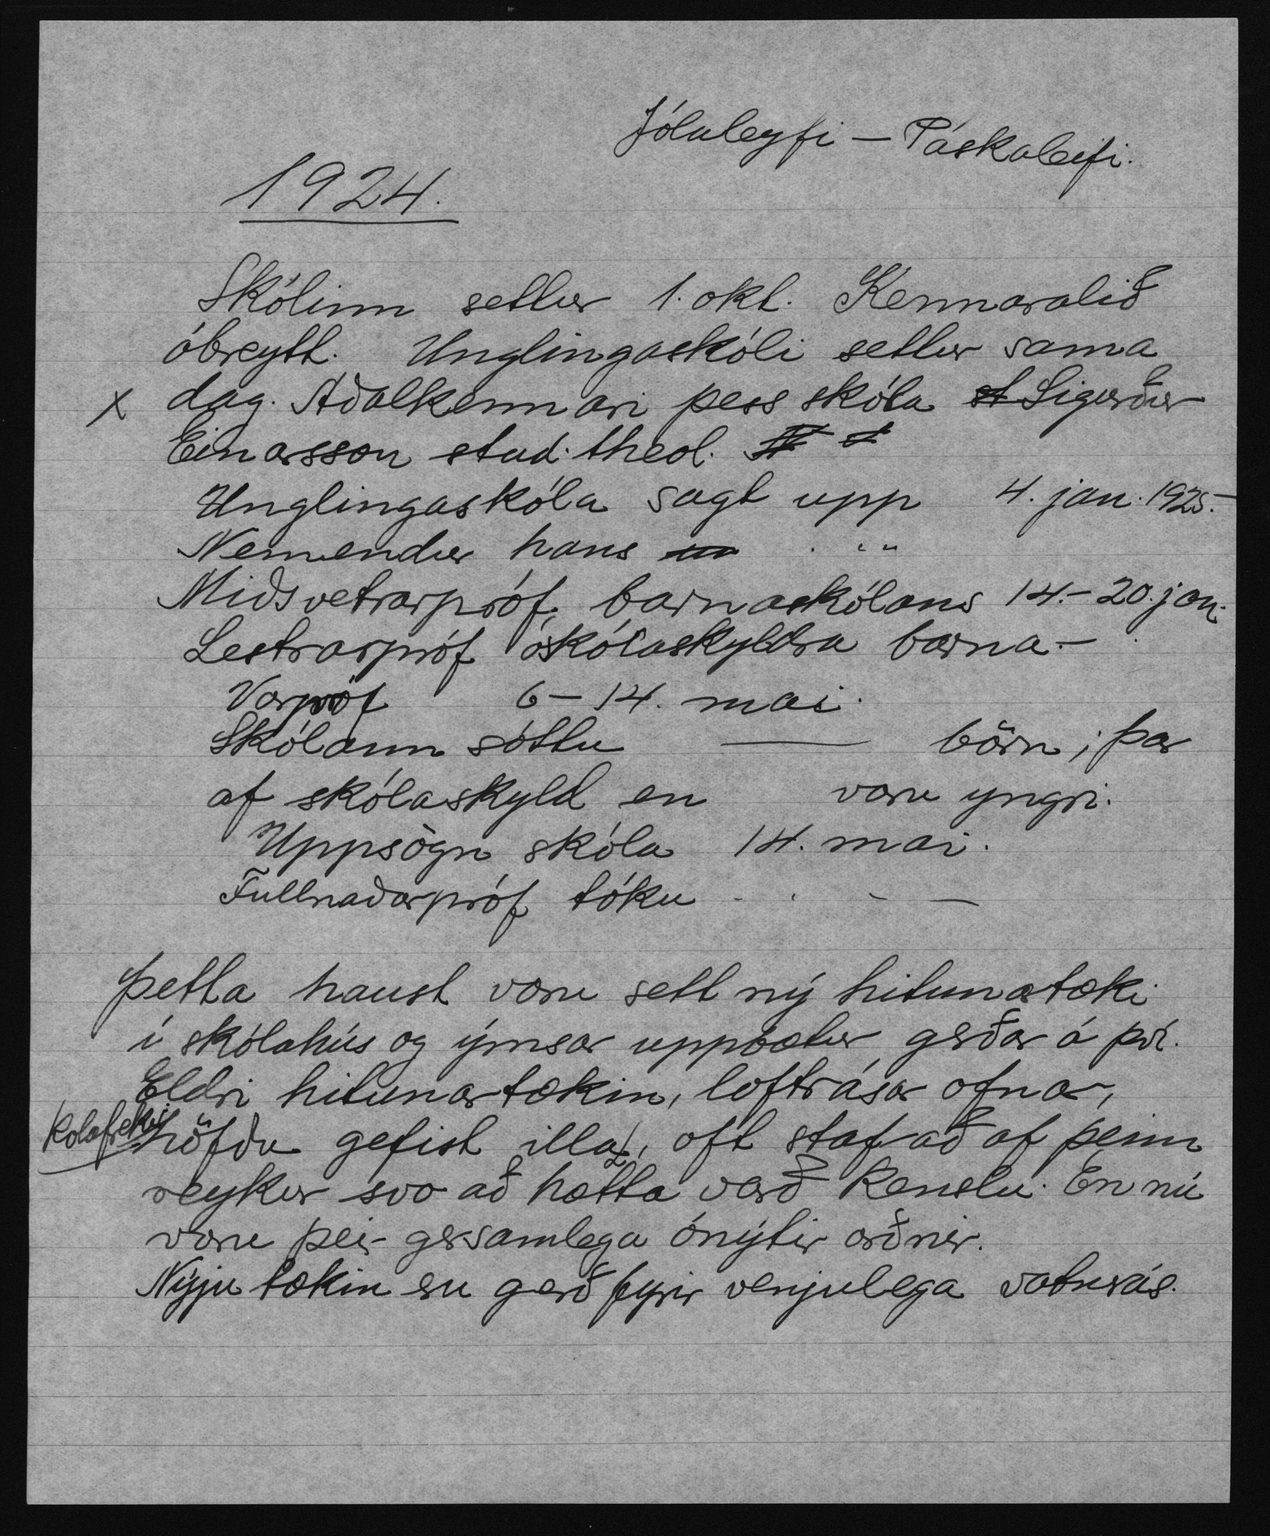 Jólaleyfi — Páskaleyfi.
1924.
Skólinn settur 1. okt. Kennaralið
óbreytt. Unglingaskóli settur sama
x dag. Aðalkennari þess skóla Sigurður
Einarsson stud. theol.
Unglingaskóla sagt upp 4. jan. 1925.-
Nemendur hans . „
Miðsvetrarpróf barnaskólans 14.-20. jan.
Lestrarpróf óskólaskyldra barna.-
Vorpróf 6-14. mai.
Skólann sóttu — börn; þar
af skólaskyld en voru yngri.
Uppsögn skóla 14. mai.
Fullnaðarpróf tóku - . - —
Þetta haust voru sett ný hitunartæki
í skólahús og ýmsar uppbætur gerðar á því.
Eldri hitunartækin, loftrásar ofnar,
höfðu gefist illa, oft stafað af þeim
reykur svo að hætta varð kenslu. En nú
voru þeir gersamlega ónýtir orðnir.
Nýju tækin eru gerð fyrir venjulega vatnsrás.